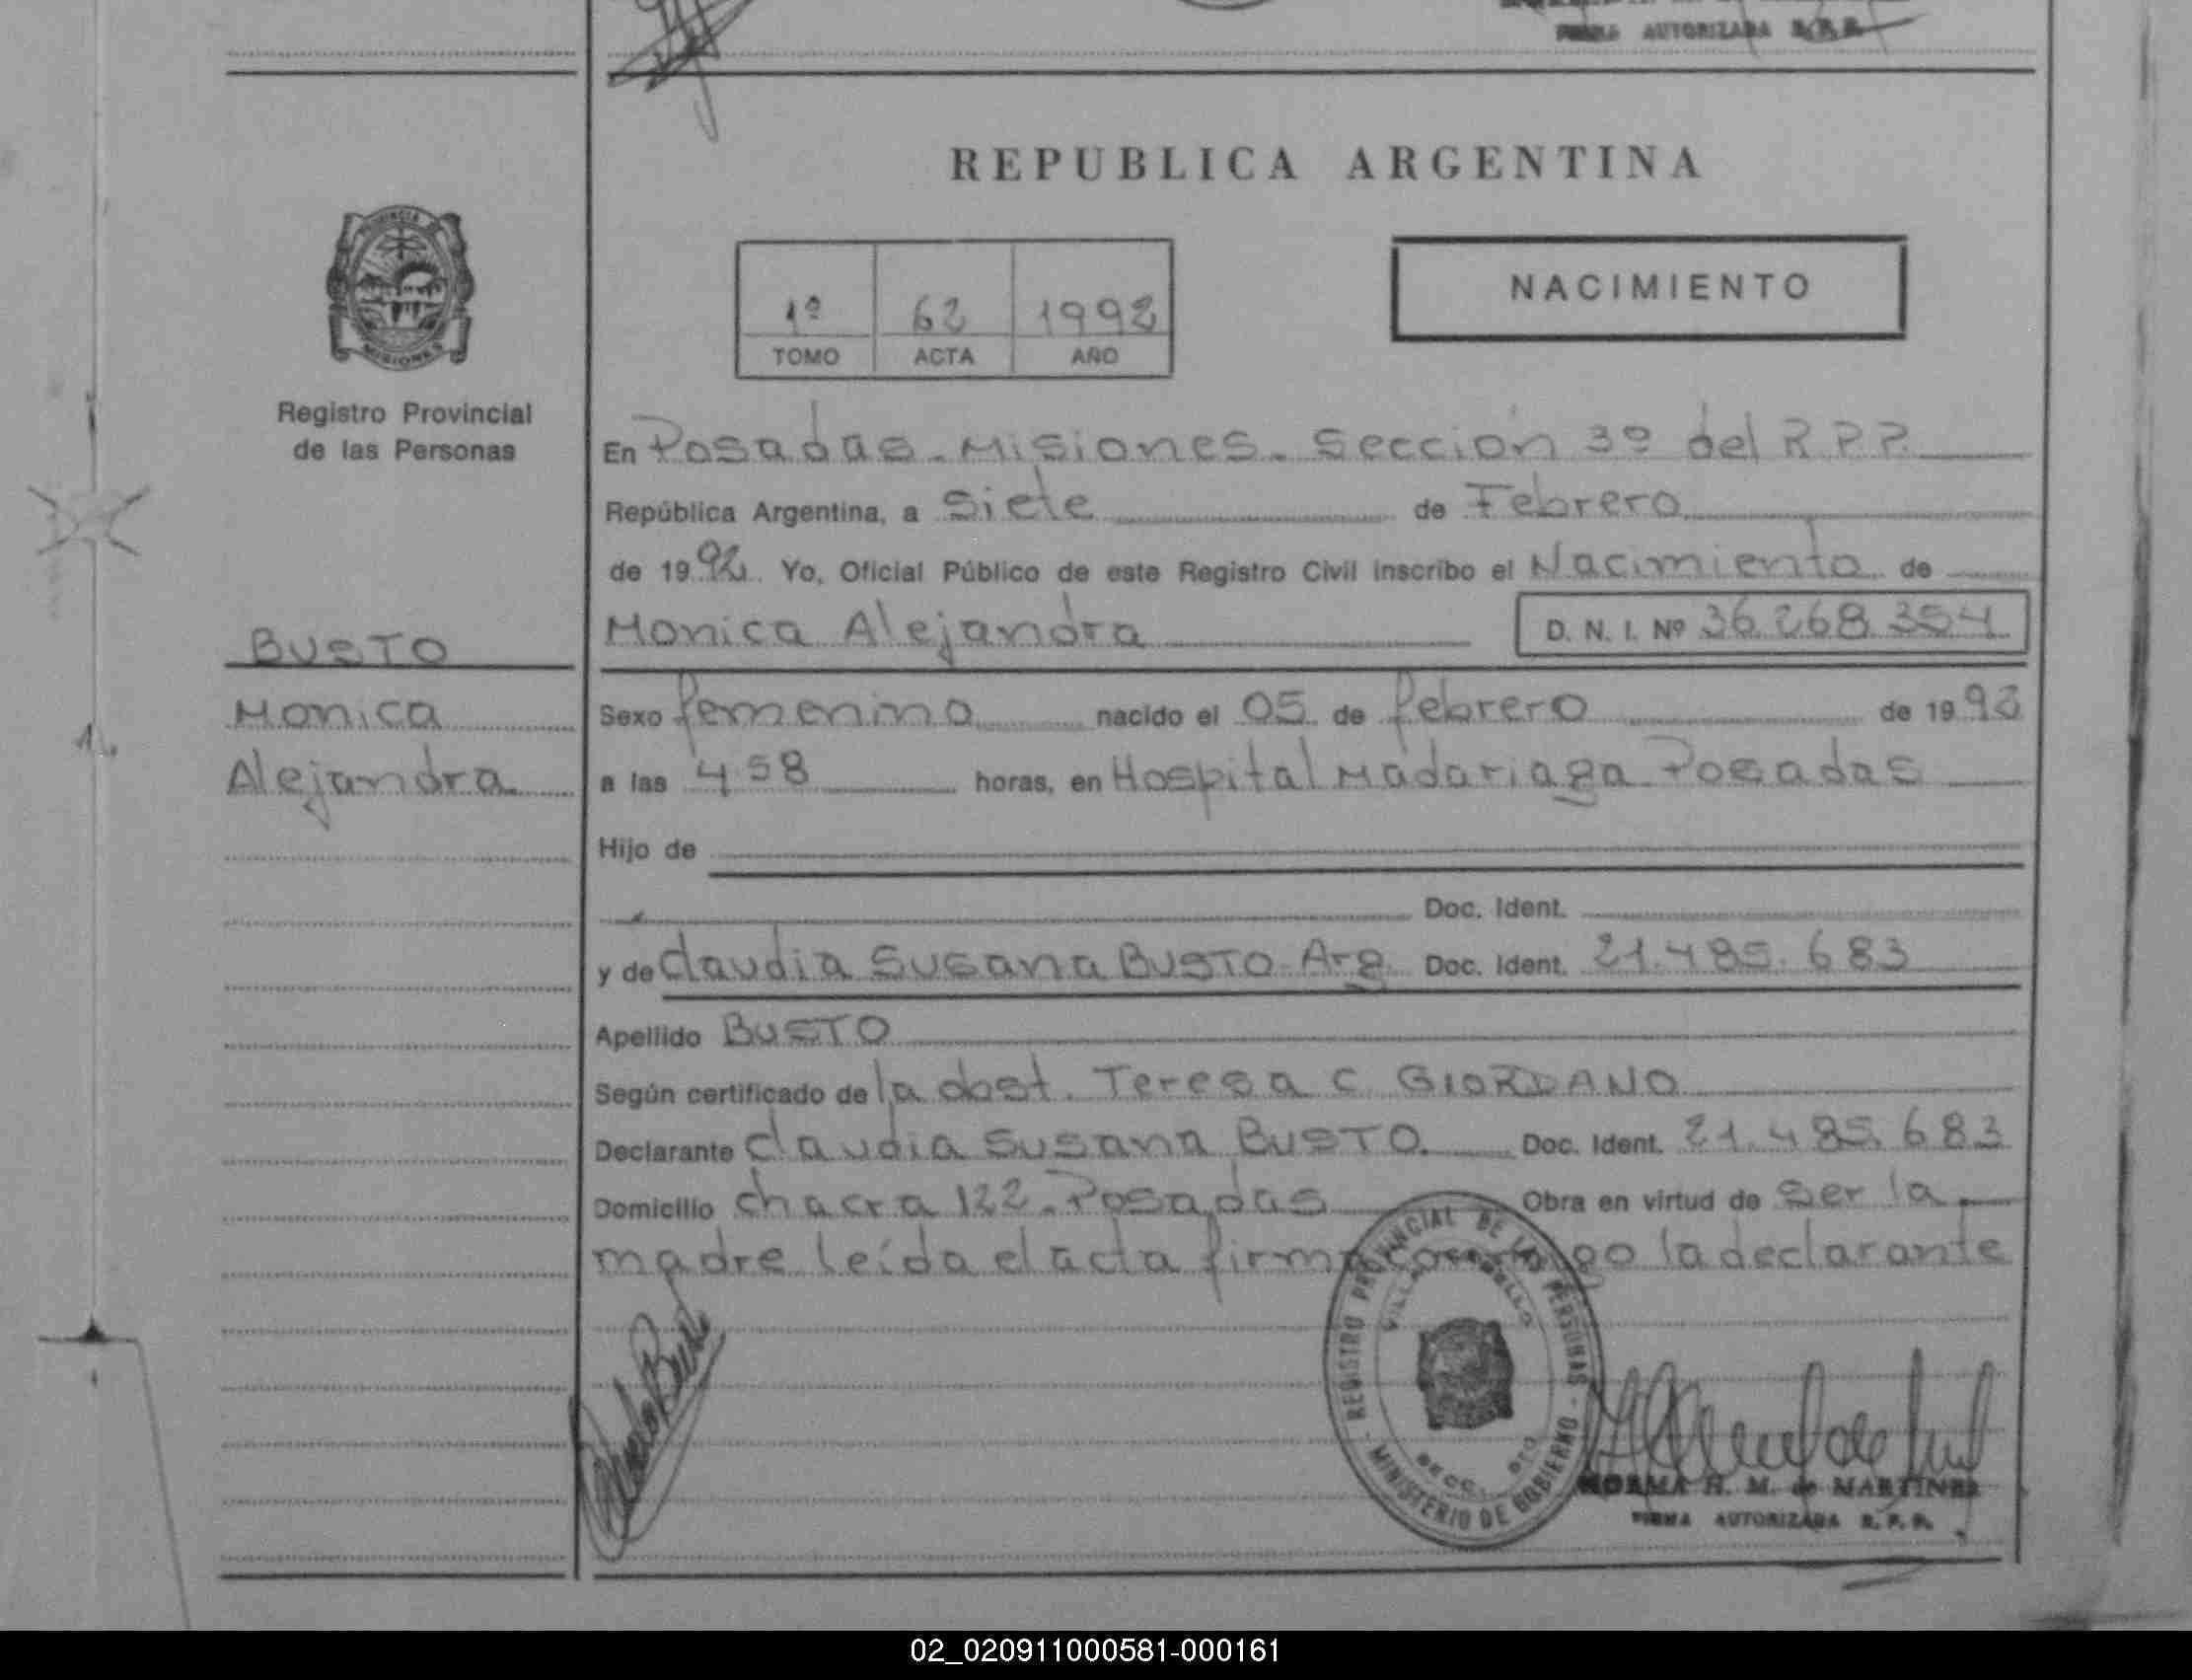 FIRMA AUTORIZADA R.P.P.
REPUBLICA ARGENTINA
PROVINCIA DE
MISIONES
Registro Provincial
de las Personas
1º 62 1992
TOMO ACTA AÑO
NACIMIENTO
En Posadas. Misiones. Sección 3º del R.P.P.
República Argentina, a Siete de Febrero
de 1992. Yo, Oficial Público de este Registro Civil inscribo el Nacimiento de
Monica Alejandra D. N. I. Nº 36.268.354
BUSTO
Monica
Alejandra
Sexo femenino nacido el 05 de febrero de 1992
a las 4.58 horas, en Hospital Madariaga Posadas
Hijo de
Doc. Ident.
y de Claudia Susana BUSTO Arg. Doc. Ident. 21.485.683
Apellido BUSTO
Según certificado de la obst. Teresa C. GIORDANO
Declarante Claudia Susana BUSTO. Doc. Ident. 21.485.683
Domicilio chacra 122. Posadas Obra en virtud de ser la
madre leída el acta firma conmigo la declarante
REGISTRO PROVINCIAL DE LAS PERSONAS
MINISTERIO DE GOBIERNO
NORMA H. M. de MARTINEZ
FIRMA AUTORIZADA R. P. P.
02_020911000581-000161